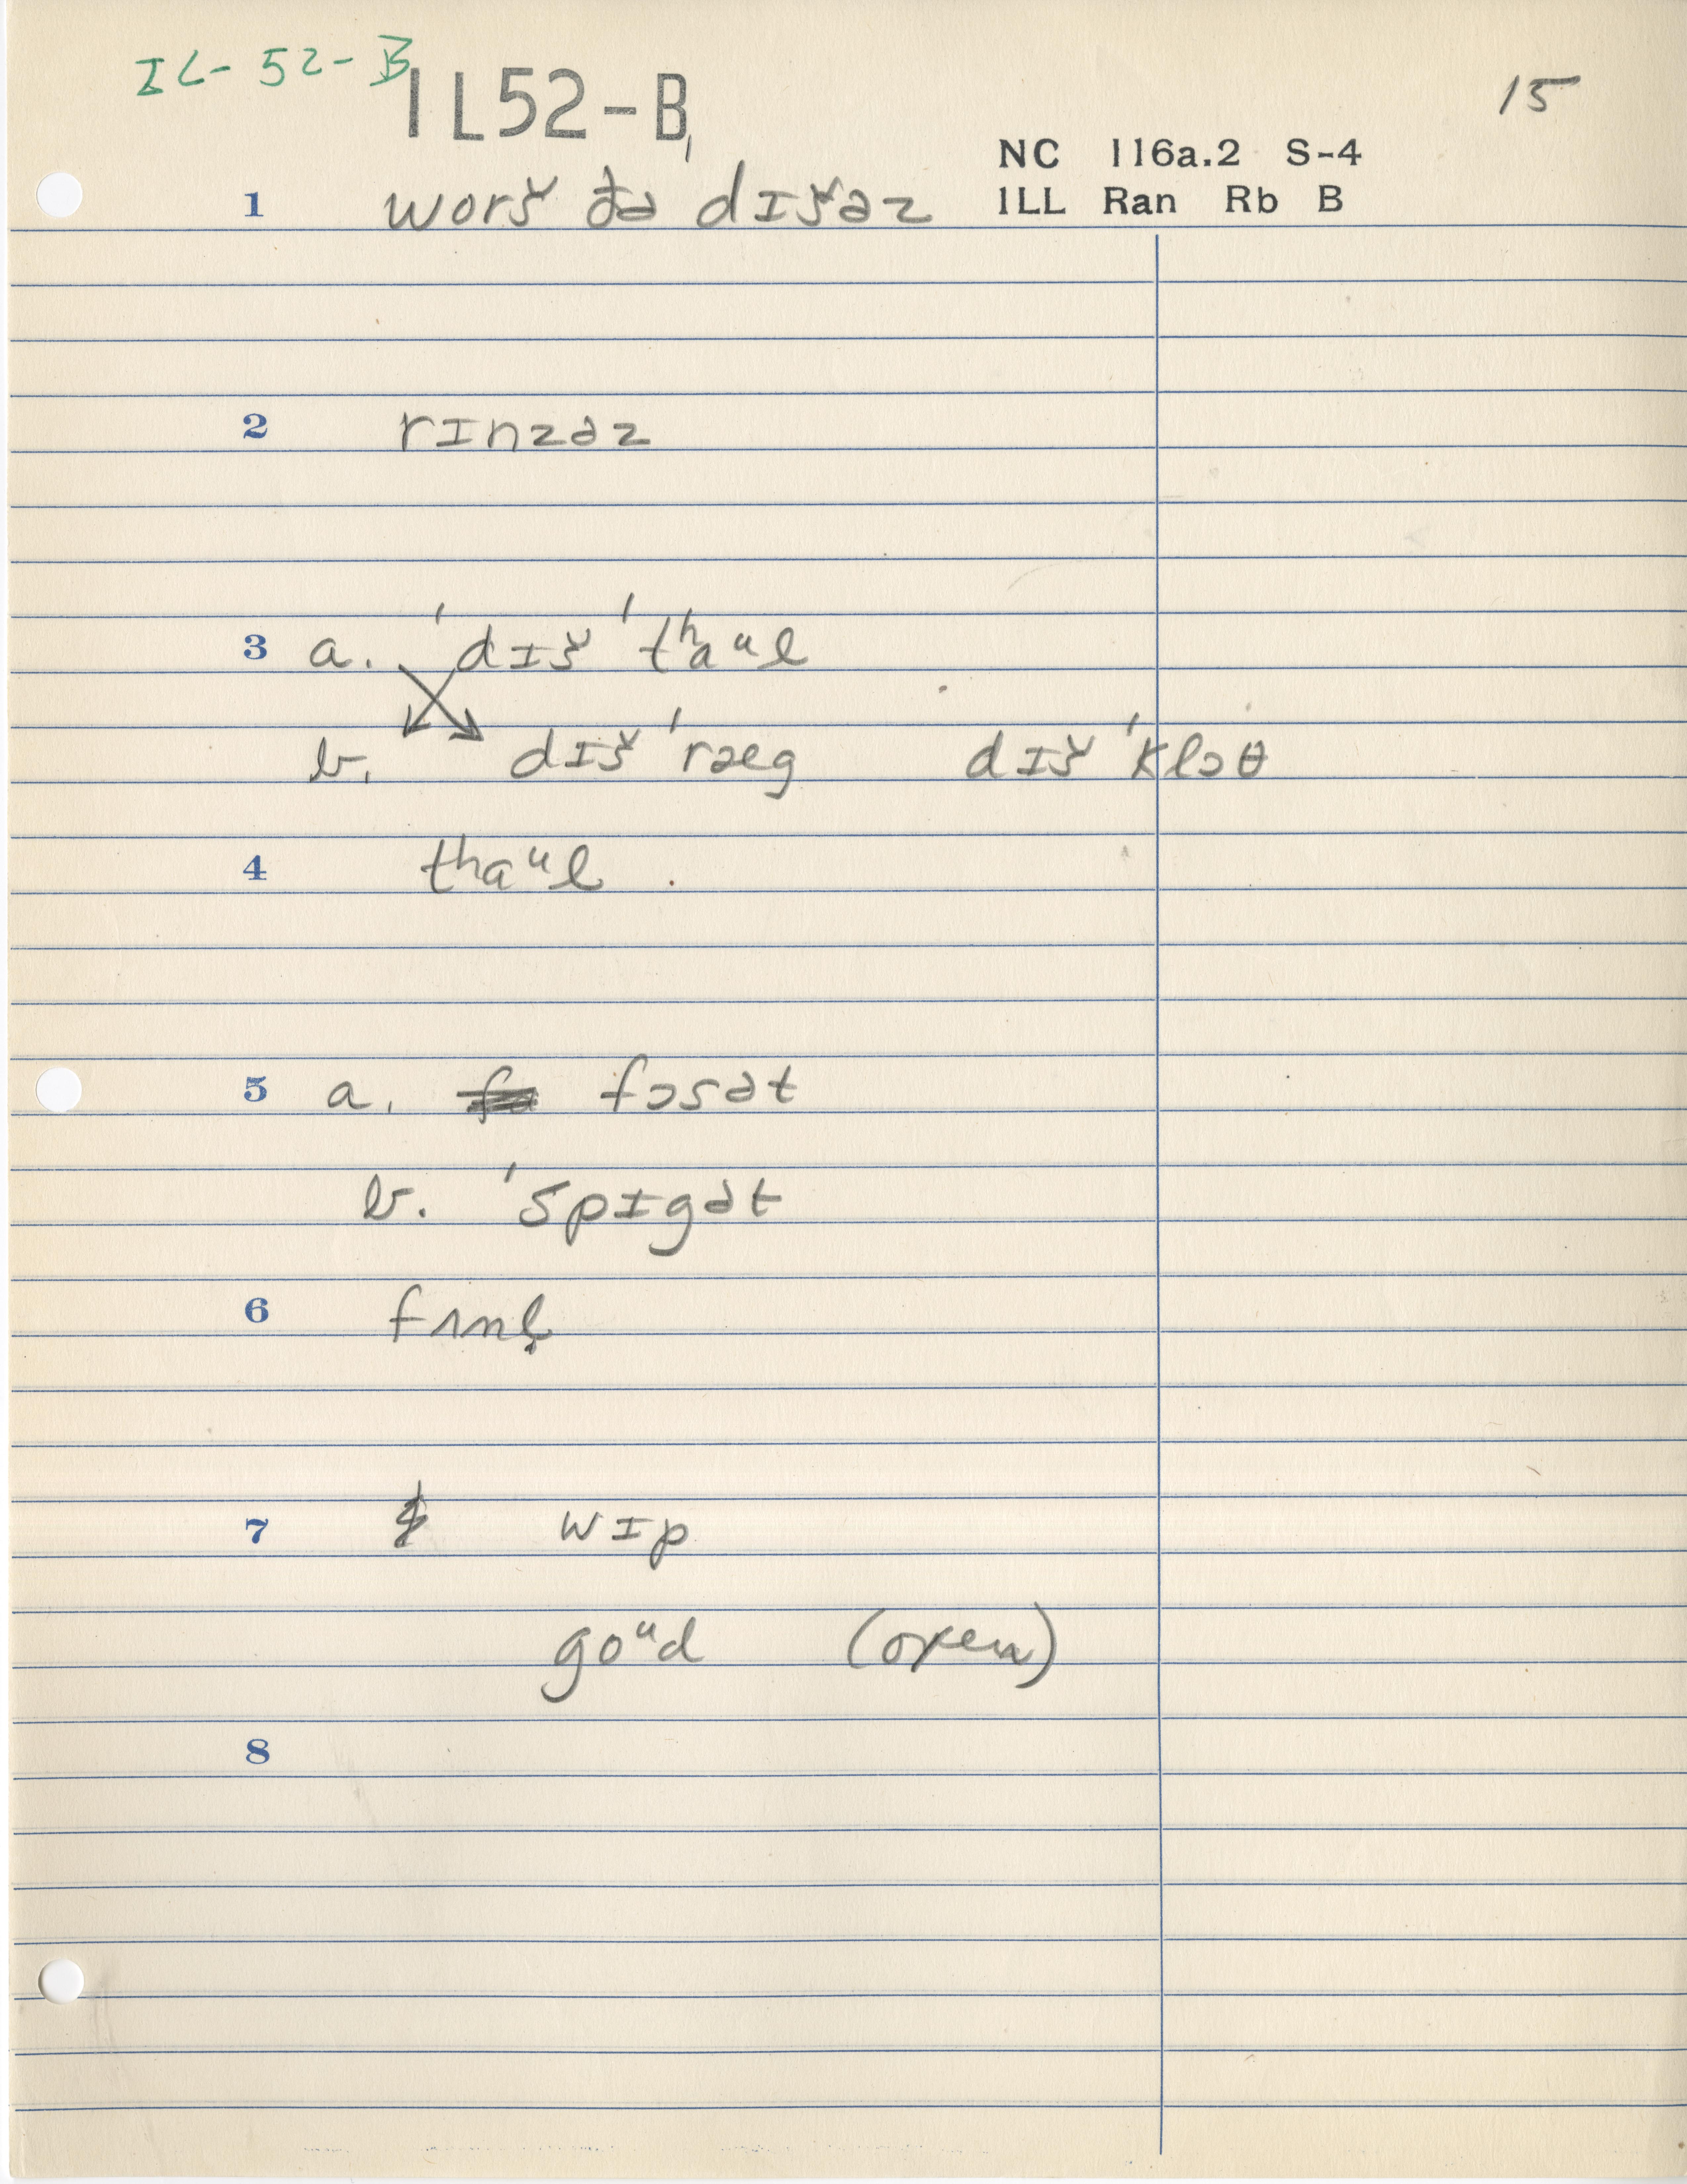 IL-52-B
IL52-B
15
NC 116a.2 S-4
1LL Ran Rb B
1 worš ðə dɪšəz
2 rɪnzəz
3 a. ˈdɪš ˈtʰaᵘl
b. dɪš ˈræg dɪš ˈklɔθ
4 tʰaᵘl
5 a. fɔsət
b. ˈspɪgət
6 fʌnl̥
7 wɪp
goᵘd (oxen)
8